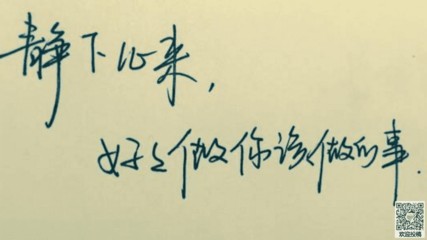 静下心来，
好好做你该做的事.
欢迎投稿